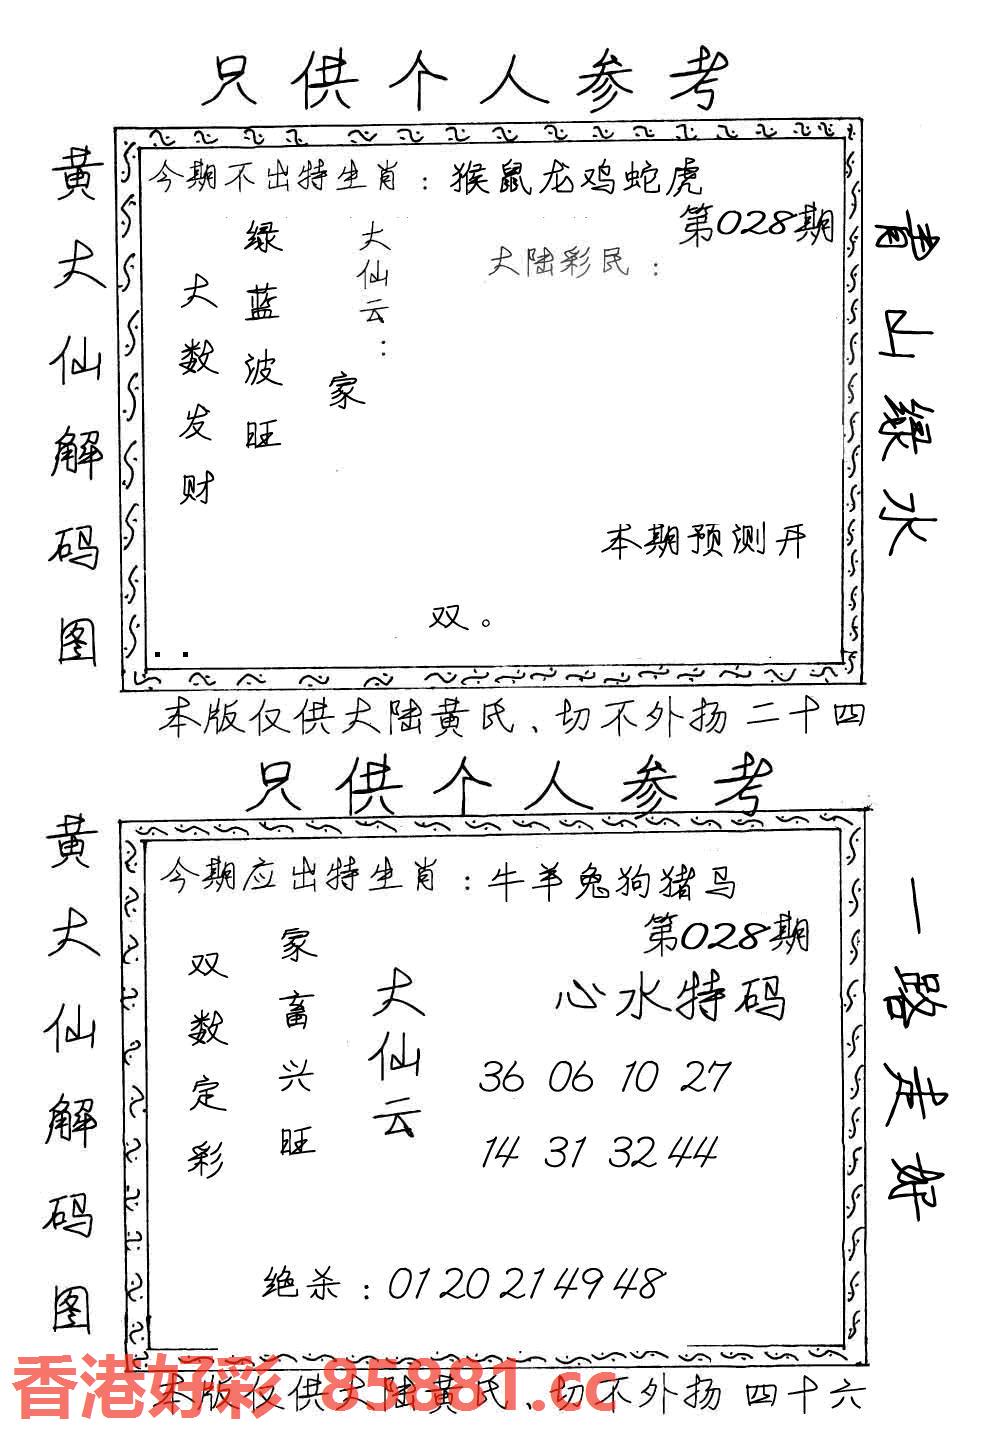 只供个人参考
黄大仙解码图
今期不出特生肖：猴鼠龙鸡蛇虎
第028期
大陆彩民：
大仙云：
家
绿蓝波旺
大数发财
本期预测开
双。
青山绿水
本版仅供大陆黄氏、切不外扬 二十四
只供个人参考
黄大仙解码图
今期应出特生肖：牛羊兔狗猪马
第028期
心水特码
36 06 10 27
14 31 32 44
大仙云
家畜兴旺
双数定彩
绝杀：01 20 21 49 48
一路走好
香港好彩 85881.cc
本版仅供大陆黄氏、切不外扬 四十六